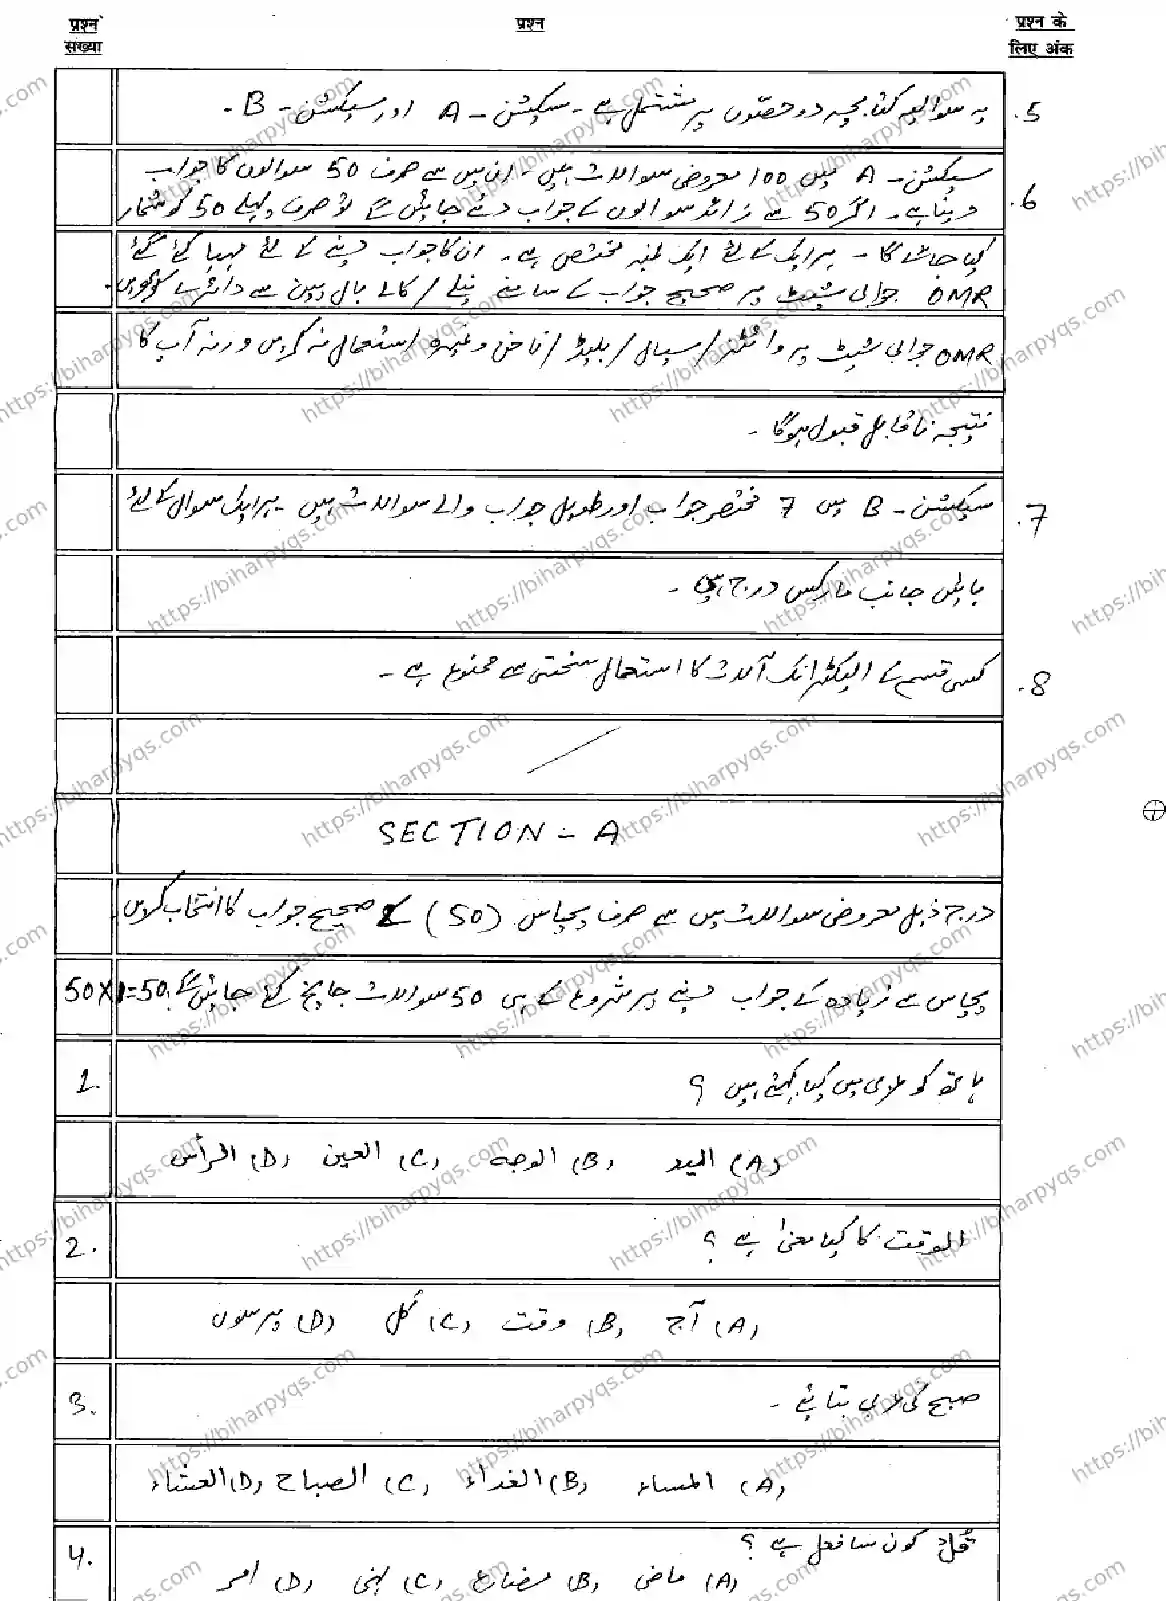 प्रश्न संख्या
प्रश्न
प्रश्न के लिए अंक
5. یہ سوالیہ کتابچہ دو حصّوں پر مشتمل ہے۔ سیکشن - A اور سیکشن - B۔
6. سیکشن - A میں 100 معروضی سوالات ہیں۔ ان میں سے صرف 50 سوالوں کا جواب
دینا ہے۔ اگر 50 سے زائد سوالوں کے جواب دئے جائیں گے تو صرف پہلے 50 کو شمار
کیا جائے گا۔ ہر ایک کے لئے ایک نمبر مختص ہے۔ ان کا جواب دینے کے لئے مہیا کئے گئے
OMR جوابی شیٹ پر صحیح جواب کے سامنے نیلے / کالے بال پین سے دائرے کو بھریں۔
OMR جوابی شیٹ پر وائٹنر / سیال / بلیڈ / ناخن وغیرہ استعمال نہ کریں ورنہ آپ کا
نتیجہ ناقابل قبول ہوگا۔
7. سیکشن - B میں 7 مختصر جواب اور طویل جواب والے سوالات ہیں۔ ہر ایک سوال کے لئے
بائیں جانب مارکس درج ہیں۔
8. کسی قسم کے الیکٹرانک آلات کا استعمال سختی سے ممنوع ہے۔
SECTION - A
درج ذیل معروضی سوالات میں سے صرف پچاس (50) کے صحیح جواب کا انتخاب کریں
پچاس سے زیادہ کے جواب دینے پر شروع کے ہی 50 سوالات جانچ کئے جائیں گے۔ 50×1=50
1. ہاتھ کو عربی میں کیا کہتے ہیں ؟
(A) الید (B) الوجه (C) العین (D) الرأس
2. الوقت کا کیا معنیٰ ہے ؟
(A) آج (B) وقت (C) کل (D) پرسوں
3. صبح کی عربی بتائیے۔
(A) المساء (B) الغداء (C) الصباح (D) العشاء
4. کون سا فعل ہے ؟
(A) ماضی (B) مضارع (C) نہی (D) امر
https://biharpyqs.com